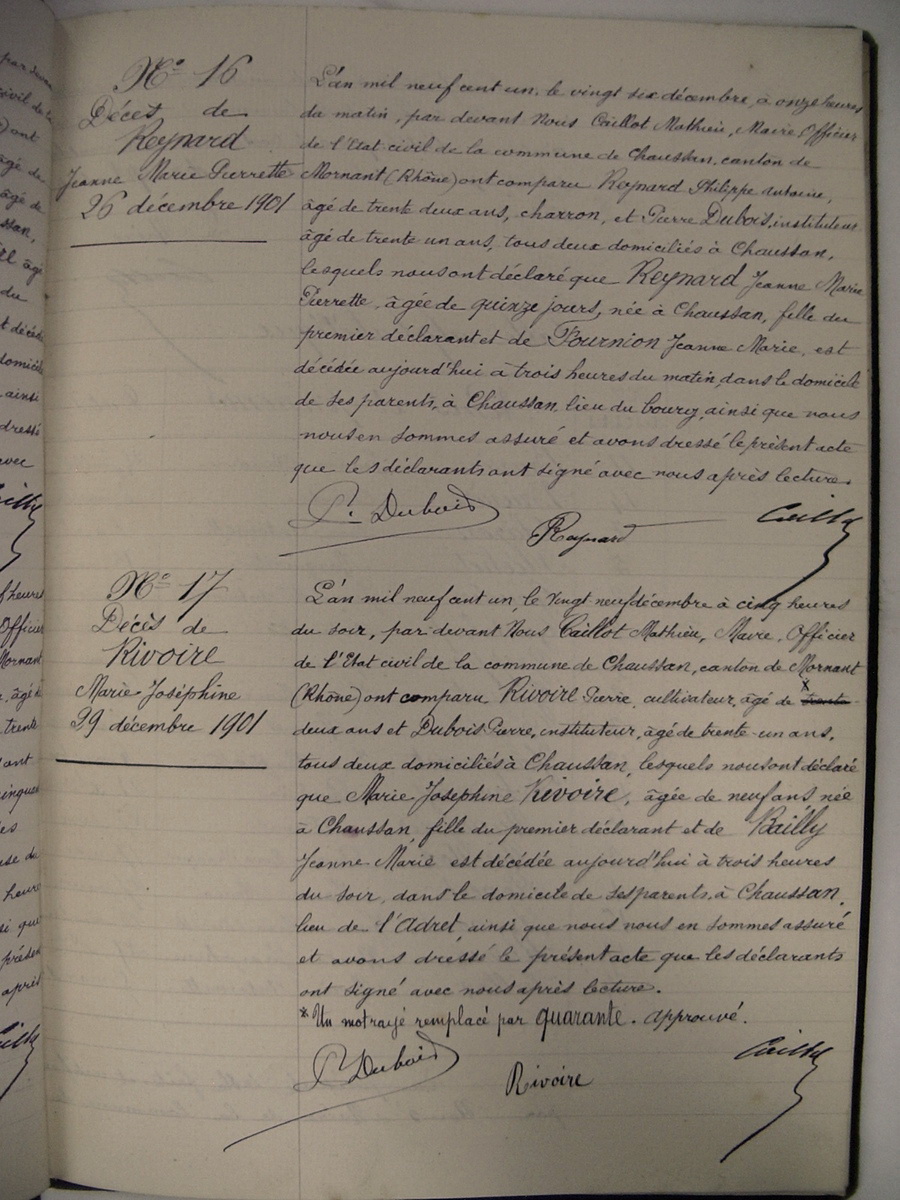 N° 16
Décès de
Reynard
Jeanne Marie Pierrette
26 décembre 1901
L'an mil neuf cent un, le vingt six décembre, à onze heures
du matin, par devant Nous Caillot Mathieu, Maire Officier
de l'Etat civil de la commune de Chaussan, canton de
Mornant (Rhône) ont comparu Reynard Philippe Antoine,
âgé de trente deux ans, charron, et Pierre Dubois, instituteur
âgé de trente un ans, tous deux domiciliés à Chaussan,
lesquels nous ont déclaré que Reynard Jeanne Marie
Pierrette, âgée de quinze jours, née à Chaussan, fille du
premier déclarant et de Fournion Jeanne Marie, est
décédée aujourd'hui à trois heures du matin, dans le domicile
de ses parents, à Chaussan, lieu du bourg, ainsi que nous
nous en sommes assuré et avons dressé le présent acte
que les déclarants ont signé avec nous après lecture.
P. Dubois
Reynard
N° 17
Décès de
Rivoire
Marie Joséphine
29 décembre 1901
L'an mil neuf cent un, le vingt neuf décembre à cinq heures
du soir, par devant Nous Caillot Mathieu, Maire, Officier
de l'Etat civil de la commune de Chaussan, canton de Mornant
(Rhône) ont comparu Rivoire Pierre, cultivateur, âgé de trente
deux ans et Dubois Pierre, instituteur, âgé de trente-un ans,
tous deux domiciliés à Chaussan, lesquels nous ont déclaré
que Marie Joséphine Rivoire, âgée de neuf ans, née
à Chaussan, fille du premier déclarant et de Bailly
Jeanne-Marie est décédée aujourd'hui à trois heures
du soir, dans le domicile de ses parents, à Chaussan,
lieu de l'Adret, ainsi que nous nous en sommes assuré
et avons dressé le présent acte que les déclarants
ont signé avec nous après lecture.
* Un mot rayé remplacé par quarante. approuvé.
P. Dubois
Rivoire